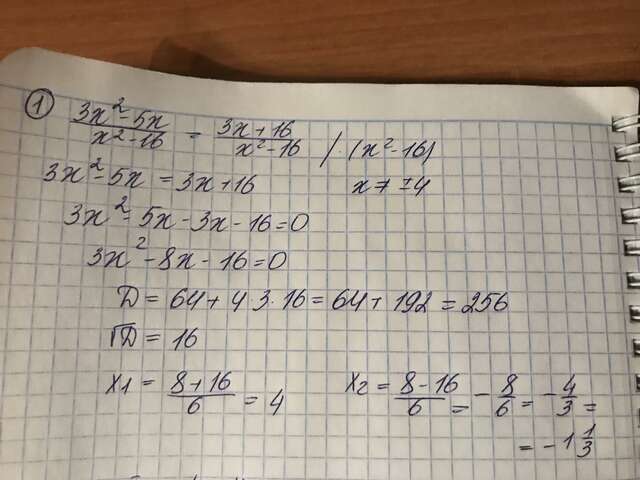 1 (3x²-5x)/(x²-16) = (3x+16)/(x²-16) / · (x²-16)
3x²-5x = 3x+16 x ≠ ±4
3x²-5x-3x-16=0
3x²-8x-16=0
Д = 64+4·3·16 = 64+192 = 256
√Д = 16
x1 = (8+16)/6 = 4 x2 = (8-16)/6 = -8/6 = -4/3 =
= -1 1/3